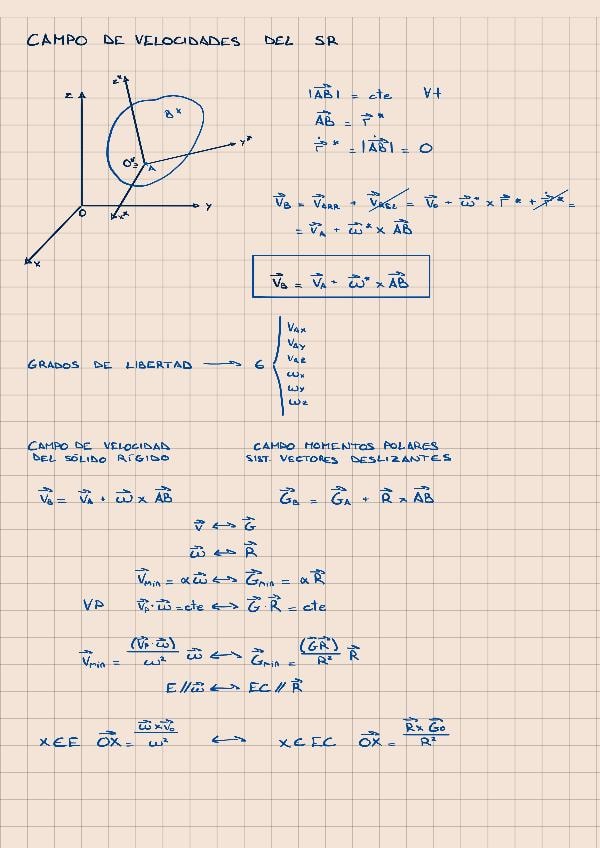 CAMPO DE VELOCIDADES DEL SR
z
z*
B*
O*≡A
y*
O
y
x*
x
|AB⃗| = cte ∀t
AB⃗ = r⃗*
ṙ⃗* = |AB⃗|˙ = 0
V⃗B = V⃗ARR + V⃗REL = V⃗0 + ω⃗* × r⃗* + ṙ⃗* =
= V⃗A + ω⃗* × AB⃗
V⃗B = V⃗A + ω⃗* × AB⃗
GRADOS DE LIBERTAD → 6 {
VAx
VAy
VAz
ωx
ωy
ωz
CAMPO DE VELOCIDAD DEL SÓLIDO RÍGIDO
CAMPO MOMENTOS POLARES SIST. VECTORES DESLIZANTES
V⃗B = V⃗A + ω⃗ × AB⃗
G⃗B = G⃗A + R⃗ × AB⃗
V⃗ ↔ G⃗
ω⃗ ↔ R⃗
V⃗min = αω⃗ ↔ G⃗min = αR⃗
VP V⃗P · ω⃗ = cte ↔ G⃗ · R⃗ = cte
V⃗min = (V⃗P · ω⃗)/ω² ω⃗ ↔ G⃗min = (G⃗R⃗)/R² R⃗
E // ω⃗ ↔ EC // R⃗
X ∈ E OX⃗ = ω⃗ × V⃗0/ω² ↔ X ∈ EC OX⃗ = R⃗ × G⃗0/R²